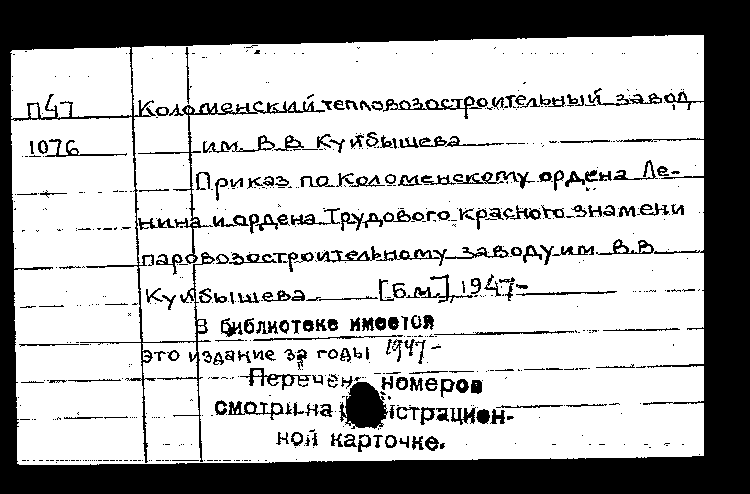 П47 Коломенский тепловозостроительный завод
1076 им. В.В. Куйбышева
Приказ по Коломенскому ордена Ле-
нина и ордена Трудового красного знамени
паровозостроительному заводу им. В.В.
Куйбышева [Б.м.], 1947-
В библиотеке имеется
это издание за годы 1947-
Перечень номеров
смотри на регистрацион-
ной карточке.